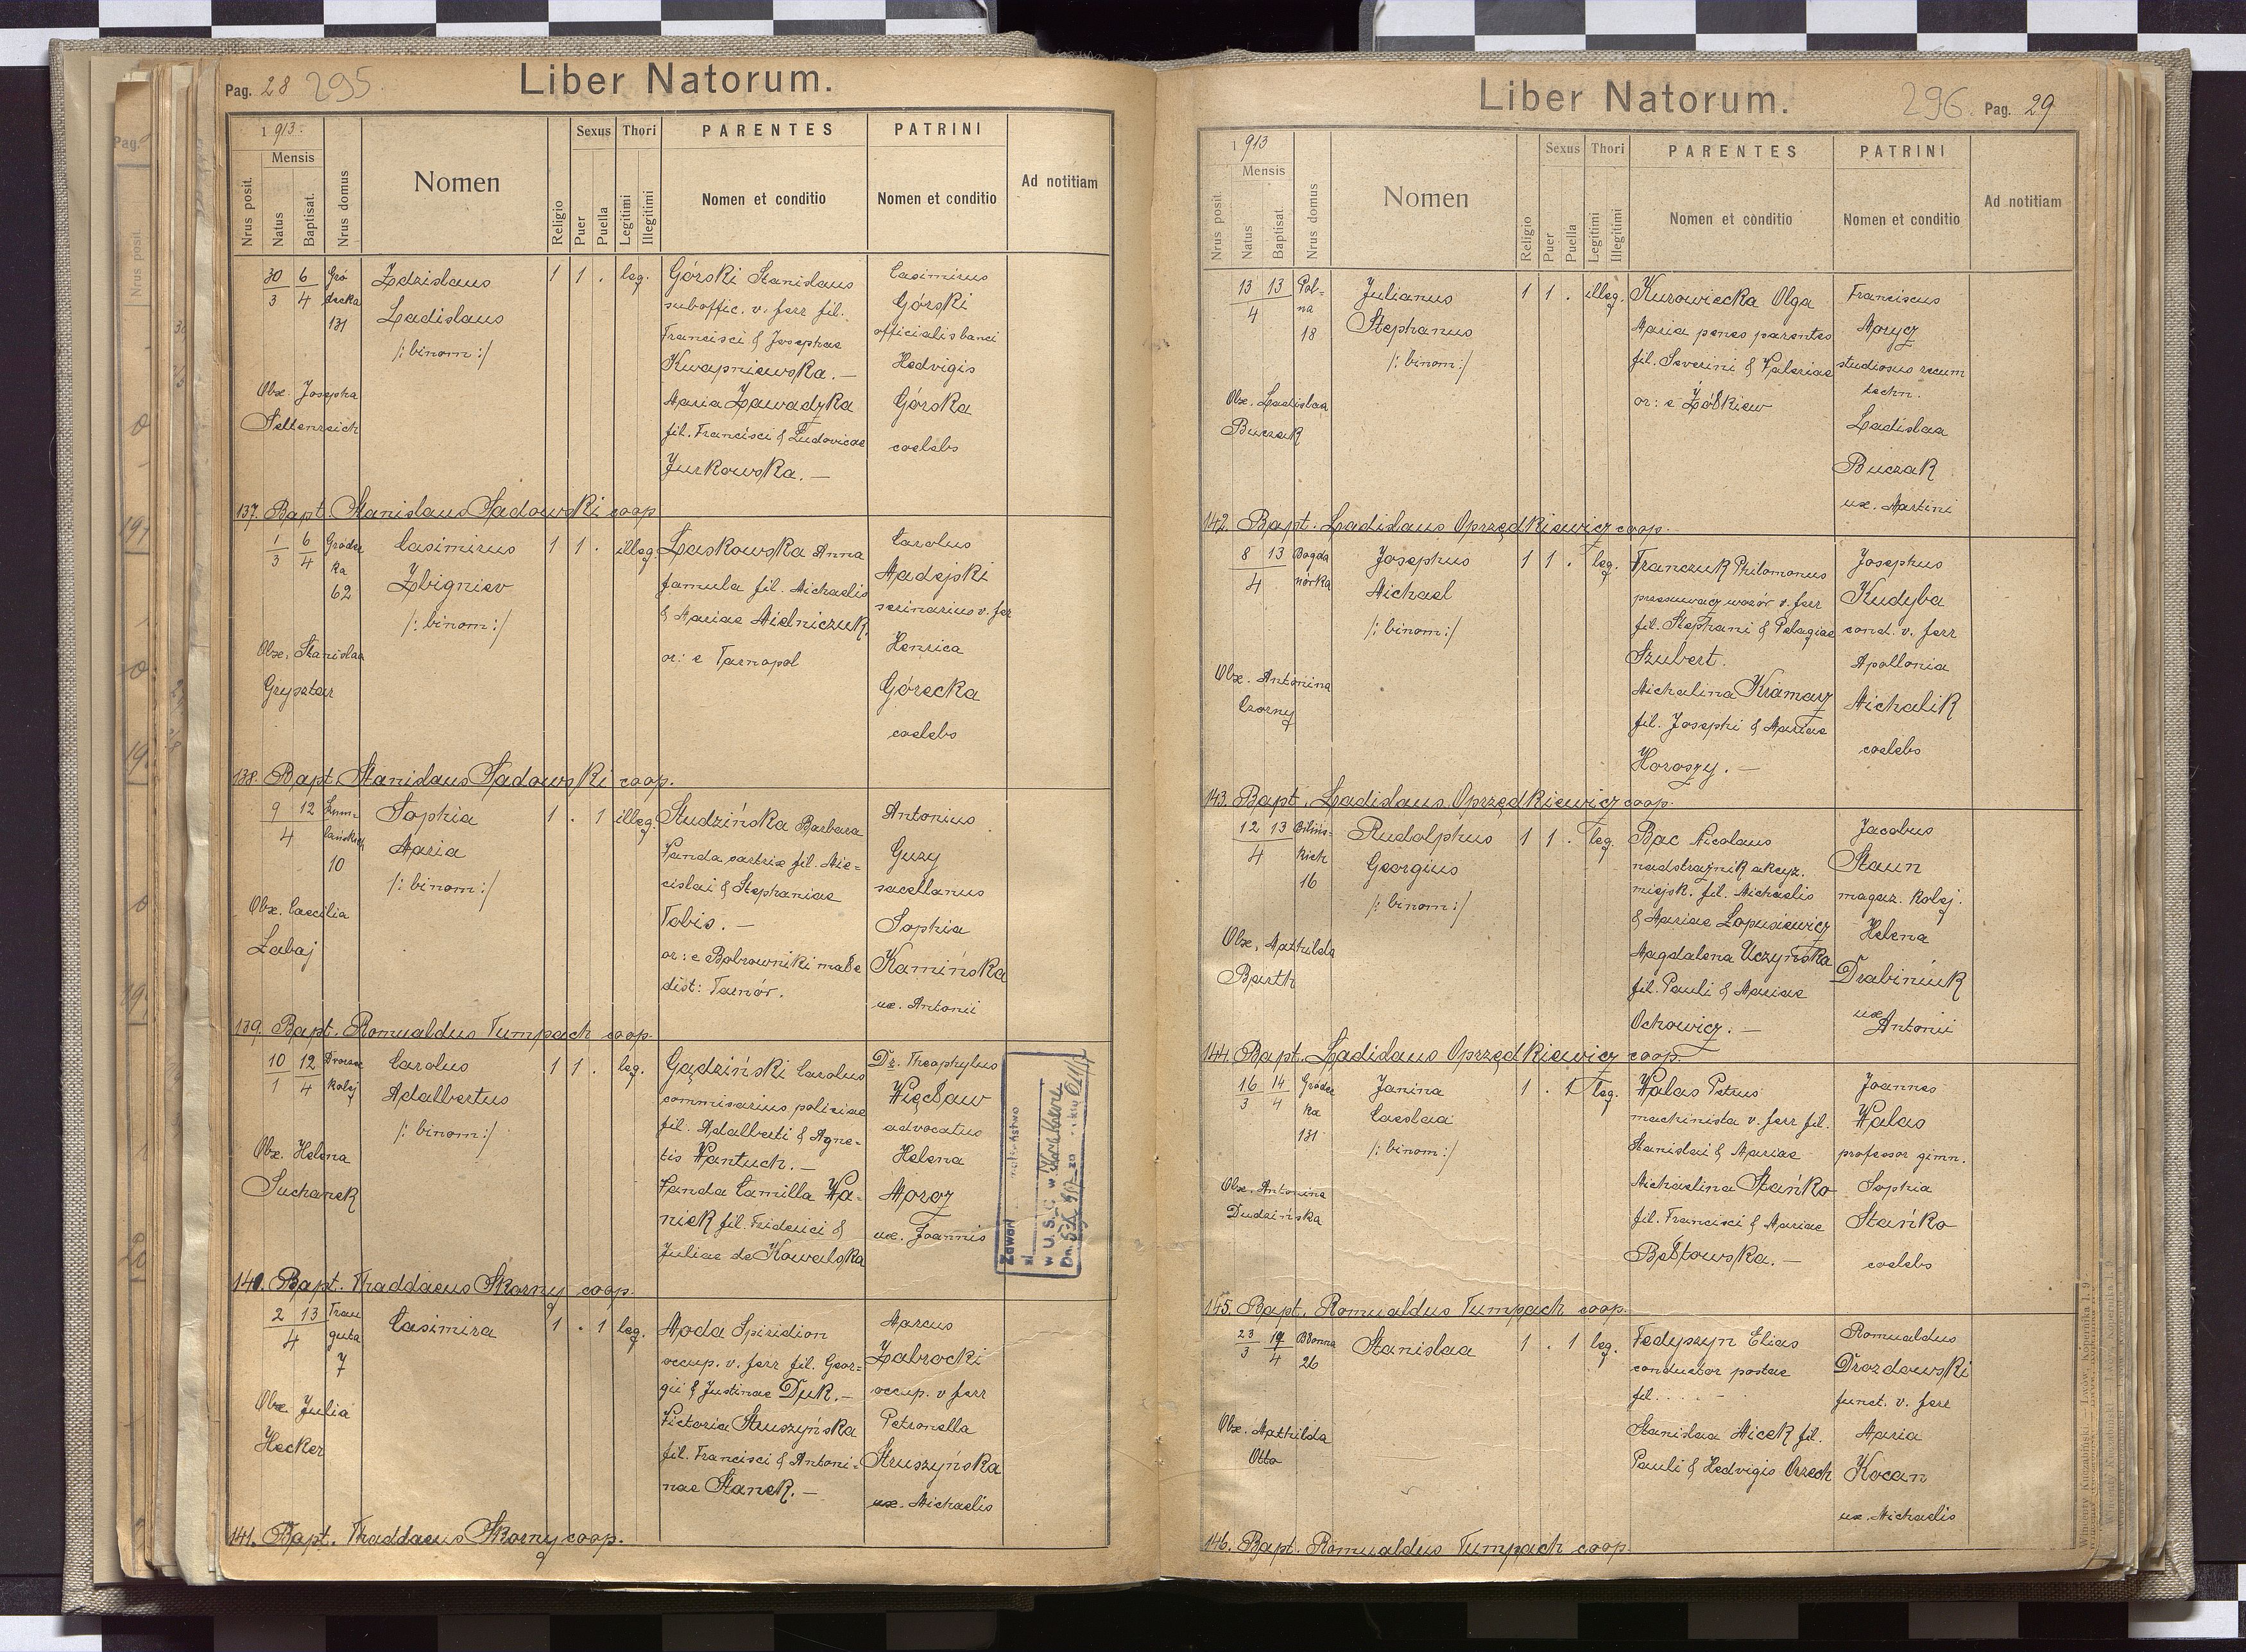 Pag. 28 295.
Liber Natorum.
1913.
Nrus posit.
Mensis
Natus
Baptisat.
Nrus domus
Nomen
Religio
Sexus
Puer
Puella
Thori
Legitimi
Illegitimi
PARENTES
Nomen et conditio
PATRINI
Nomen et conditio
Ad notitiam
30/3 6/4 Gró
decka
131
Zdzislaus
Ladislaus
/: binom :/
1 1 . leg.
Górski Stanislaus
suboffic. v. ferr fil.
Francisci & Josephae
Kwapniewska. —
Maria Zawadzka
fil. Francisci & Ludovicae
Jurkowska. —
Casimirus
Górski
officialis banci
Hedvigis
Górska
coelebs
Obx. Josepha
Seltenreich
137. Bapt. Stanislaus Sadowski coop
1/3 6/4 Gródec
ka
62
Casimirus
Zbigniev
/: binom :/
1 1 . illeg.
Laskowska Anna
famula fil. Michaelis
& Mariae Mielniczuk,
or: e Tarnopol
Carolus
Madejski
scrinarius v. ferr
Henrica
Górecka
coelebs
Obx. Stanislaa
Grysztar
138. Bapt. Stanislaus Sadowski coop.
9/4 12 Szum-
lańskich
10
Sophia
Maria
/: binom :/
1 . 1 illeg.
Studzińska Barbara
Vanda sartrix fil. Mie-
cislai & Stephaniae
Tobis. —
or: e Bobrowniki małe
dist: Tarnów.
Antonius
Guzy
sacellanus
Sophia
Kamińska
ux. Antonii
Obx. Caecilia
Labaj
139. Bapt. Romualdus Tumpach coop.
10/1 12/4 Dworzec
kolej
Carolus
Adalbertus
/: binom :/
1 1 . leg.
Gądziński Carolus
commisarius policiae
fil. Adalberti & Agne-
tis Wantuch. —
Vanda Camilla Wa-
niek fil. Friderici &
Juliae de Kowalska
Dr. Theophylus
Więcław
advocatus
Helena
Moroz
ux. Joannis
Obx. Helena
Suchanek
Zawarł
małżeństwo
w U.S.C. w
Dn.
140. Bapt. Thaddaeus Skorny coop.
2/4 13 Trau
guta
7
Casimira
1 . 1 leg.
Moda Spiridion
occup. v. ferr fil. Geor-
gii & Justinae Duk. —
Victoria Struszyńska
fil. Francisci & Antoni-
nae Stanek. —
Marcus
Zabrocki
occup. v ferr
Petronella
Struszyńska
ux. Michaelis
Obx. Julia
Hecker
141. Bapt. Thaddaeus Skorny coop.
Liber Natorum.
296. Pag. 29
1913
Nrus posit.
Mensis
Natus
Baptisat.
Nrus domus
Nomen
Religio
Sexus
Puer
Puella
Thori
Legitimi
Illegitimi
PARENTES
Nomen et conditio
PATRINI
Nomen et conditio
Ad notitiam
13/4 13 Pol-
na
18
Julianus
Stephanus
/: binom :/
1 1 . illeg.
Kurowiecka Olga
Maria penes parentes
fil. Severini & Valeriae
or: e Żółkiew
Franciscus
Morycz
studiosus rerum
techn.
Ladislaa
Buczak
ux. Martini
Obx. Ladislaa
Buczak
142. Bapt. Ladislaus Oprzędkiewicz coop.
8/4 13 Bogda
nówka
Josephus
Michael
/: binom :/
1 1 . leg.
Franczuk Philomonus
przesuwacz wozów v. ferr
fil. Stephani & Pelagiae
Szubert.
Michalina Kramarz
fil. Josephi & Mariae
Horoszy. —
Josephus
Kudyba
cond. v. ferr
Apollonia
Michalik
coelebs
Obx. Antonina
Czorny
143. Bapt. Ladislaus Oprzędkiewicz coop.
12/4 13 Bilińs-
kich
16
Rudolphus
Georgius
/: binom :/
1 1 . leg.
Bac Nicolaus
nadstrażnik akcyz.
miejsk. fil. Michaelis
& Mariae Łopusiewicz
Magdalena Uczyńska
fil. Pauli & Mariae
Ochowicz. —
Jacobus
Staun
magaz. kolej.
Helena
Drabiniuk
ux Antonii
Obx. Mathilda
Barth
144. Bapt. Ladislaus Oprzędkiewicz coop
16/3 14/4 Gródec
ka
131
Janina
Caeslaa
/: binom :/
1 . 1 leg.
Walas Petrus
machinista v. ferr fil.
Stanislai & Mariae
Michaelina Stańko
fil. Francisci & Mariae
Bełtowska. —
Joannes
Walas
professor gimn.
Sophia
Stańko
coelebs
Obx. Antonina
Dudzińska
145. Bapt. Romualdus Tumpach coop.
23/3 14/4 Błonna
26
Stanislaa
1 . 1 leg.
Fedyszyn Elias
conductor postae
fil. . . . . -
Stanislaa Micek fil.
Pauli & Hedvigis Orzech
Romualdus
Drozdowski
funct. v. ferr
Maria
Kocan
ux. Michaelis
Obx. Mathilda
Otto
146. Bapt. Romualdus Tumpach coop.